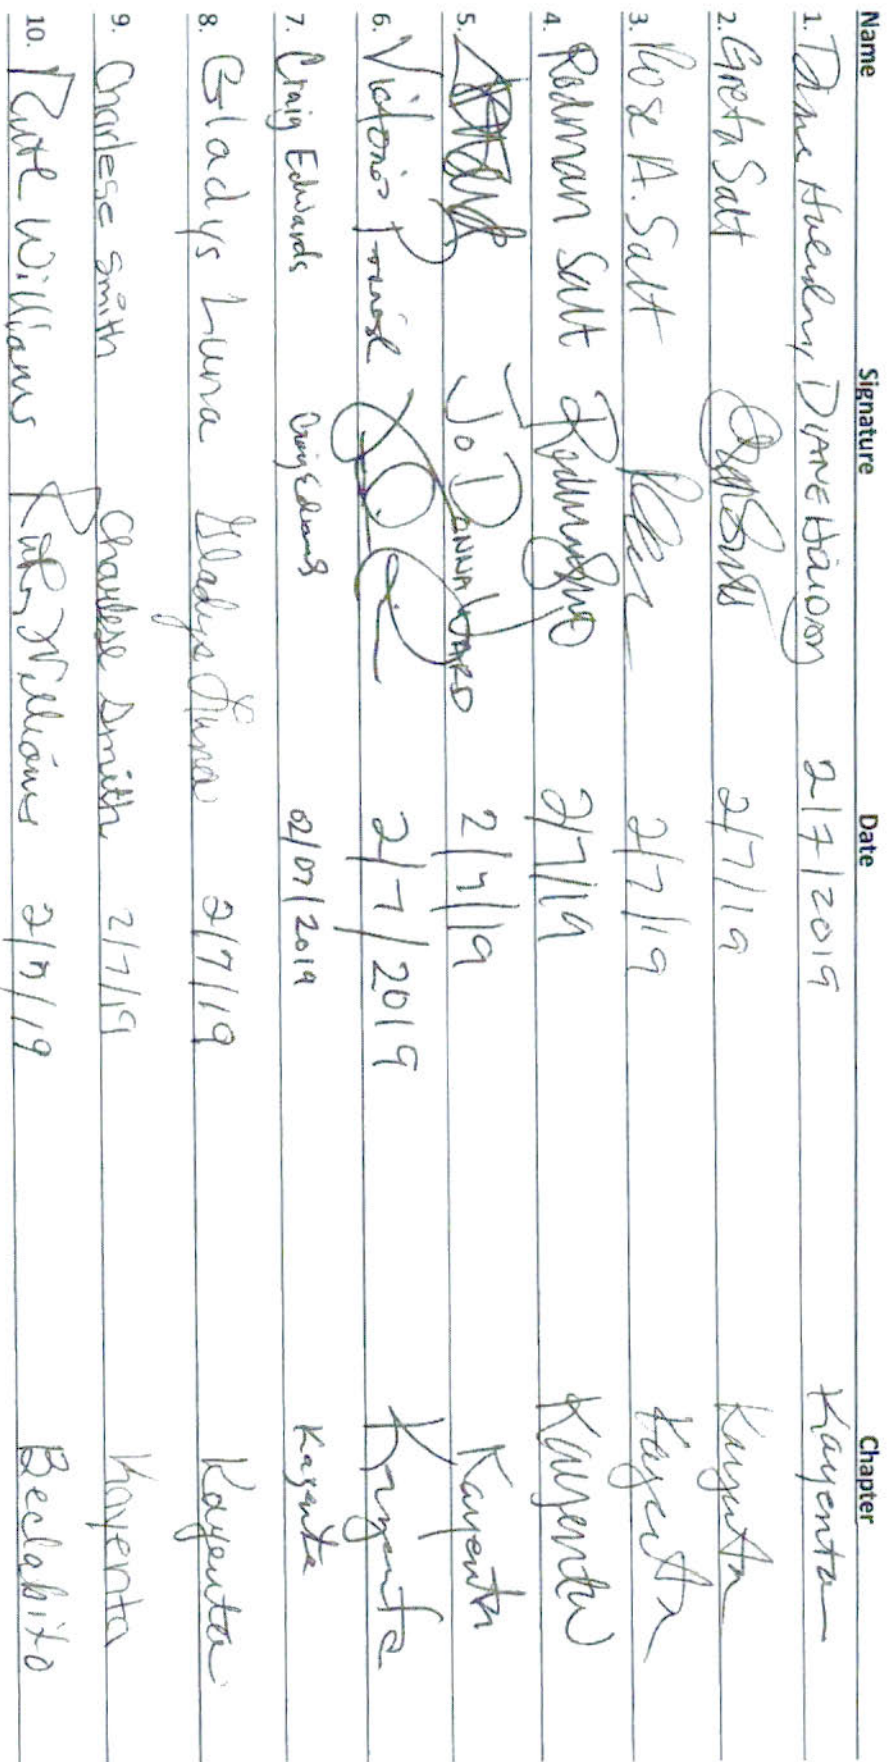 Name Signature Date Chapter
1. Diane DIANE 2/7/2019 Kayenta
2. Greta Salt 2/7/19 Kayenta
3. Rose A. Salt 2/7/19 Kayenta
4. Rodman Salt 2/7/19 Kayenta
5. JoDANNA WARD 2/7/19 Kayenta
6. 2/7/2019 Kayenta
7. Craig Edwards Craig Edwards 02/07/2019 Kayenta
8. Gladys Luna Gladys Luna 2/7/19 Kayenta
9. Charlese Smith Charlese Smith 2/7/19 Kayenta
10. Ruth Williams Ruth Williams 2/7/19 Beclabito